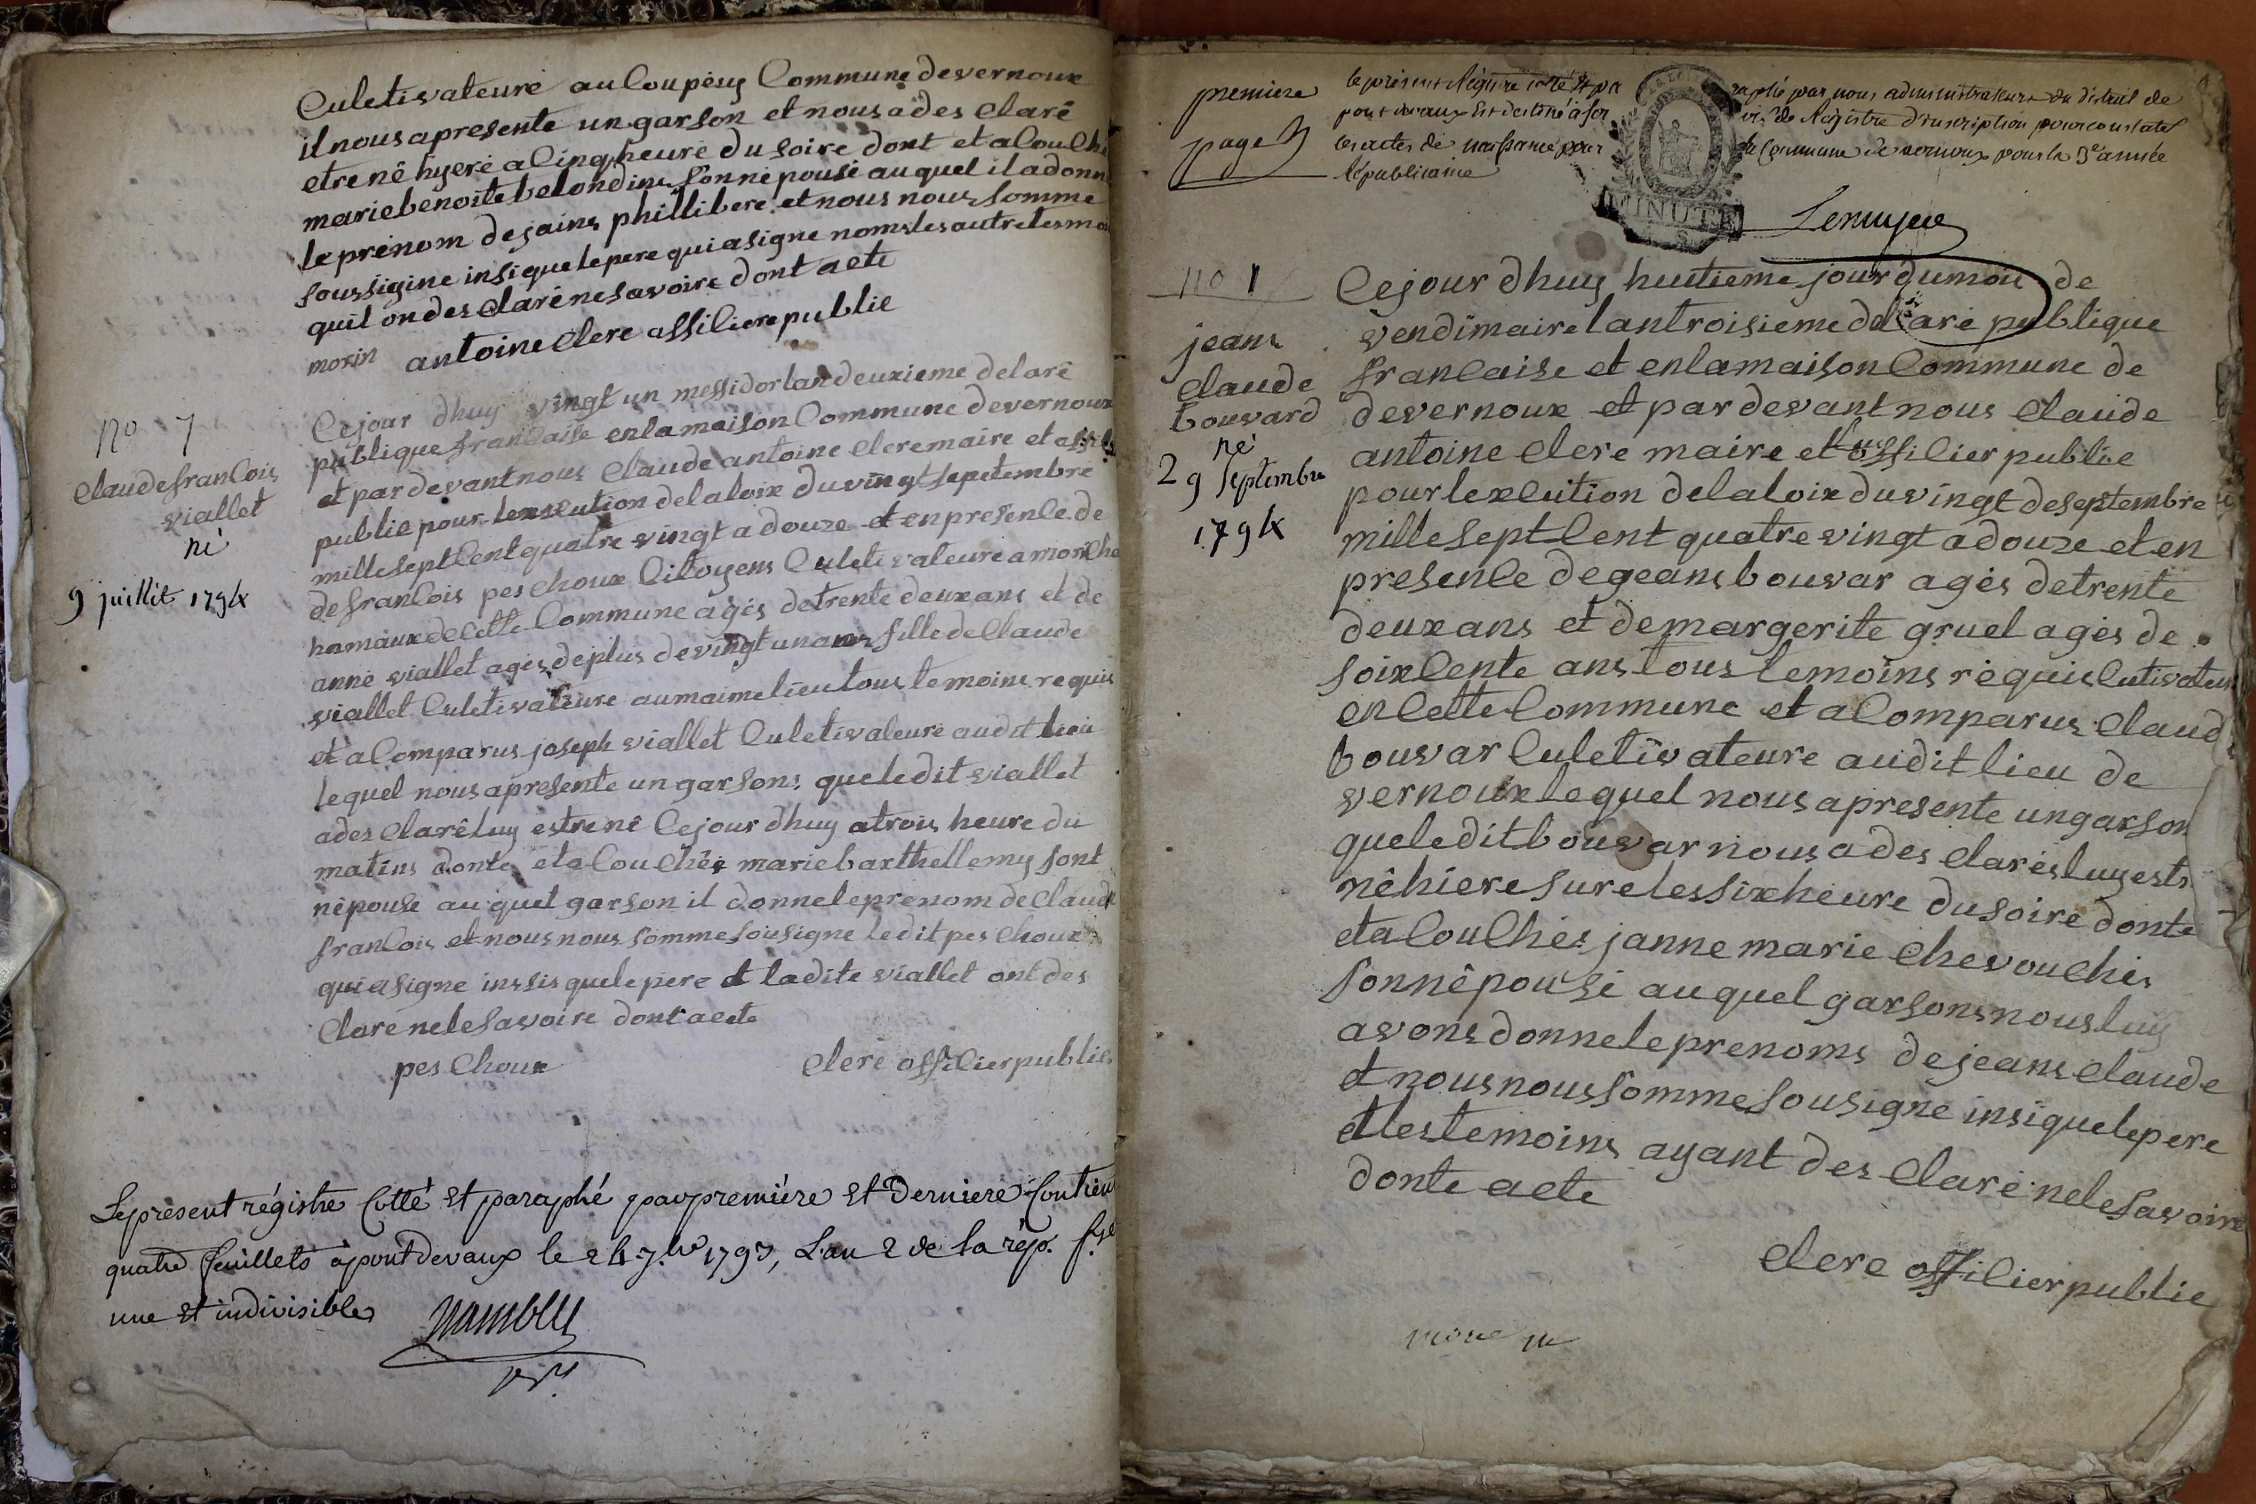 Culetivateure au Coupéuy Commune devernoux
il nous apresente un garson et nous a des Claré
etre nê hyeré a Cinq heure du soire dont et a Couch
marie benoite belondins sonne pousé au quel il a donn
le prénom dejains phillibere et nous nous somme
soussigine insi que le pere qui a signe noms les autre tesmoi
quil on des claré ne savoire dont acte
morin antoine Clere offilierepublie
no 7
Claude franCois
viallet
né
9 juillit 1794
Ce jour dhuy vingt un messidor lan deuxieme de la rê
publique franCaise en la maison Commune devernoux
et par devant nous Claude antoine Clere maire et
publie pour lexseution de la loix du vingt sepetembre
mille sept Cent quatre vingt a douze et en presenCe de
de franCois pes Choux Citoyens Culetivateure a moriCha
hamaux de Cette Commune agés de trente deux ans et de
anne viallet agés de plus de vingt un ans fille de Claude
viallet Culetivateure au maime lieu tous temoins requis
et a Comparus joseph viallet Culetivateure audit lieu
lequel nous apresente un garsons que le dit viallet
a des Clarê luy estre nê Ce jour dhuy a trois heure du
matins donte et a CouChée marie barthellemy sont
nêpouse au quel garson il donne le prenom de Claude
franCois et nous nous somme sousigne Ledit pes Choux
qui a signe inssis que le pere et la dite viallet ont des
Claré ne le savoire dont acte
pes Choux Clere offiCier publie
Le présent régistre Cotté et paraphé par première et Derniere Contient
quatre feuillets à pontdevaux le 24 7.bre 1793, L'an 2 de la rép. f.se
une et indivisible
première
page
le présent Régistre cotté et pa raphé par nous administrateurs du district de
pont devaux Est destiné à ser vir de Régistre d'inscription pour constater
les actes de naissance pour la Commune de vernoux pour la 3e année
républicaine
MINUTE
no 1
jeans
Claude
bouvard
né
29 Septembre
1794
Ce jour dhuy huitieme jour du moi de
vendïmaire lan troisieme de la rè publique
franCaise et en la maison Commune de
de vernoux et par devant nous Claude
antoine Clere maire et offilier publie
pour lexCuition de la loix du vingt de septembre
mille sept Cent quatre vingt a douze et en
presenCe de geans bouvar agés de trente
deux ans et de margerite gruel agés de
soix Cente ans tous temoins réquis Cutivateure
en Cette Commune et a Comparus Claude
bouvar Culetivateure audit lieu de
vernoux lequel nous apresente un garson
que le dit bouvar nous a des Clarés luy estr
nê hiere sure les six heure du soire donte
et a CouChés janne marie ChevouChés
sonnêpousé au quel garsons nous luy
avons donne le prenoms de jeans Claude
et nous nous somme sousigne insi que le pere
et les temoins ayant des Claré ne le savoire
donte acte
Clere offilier publie